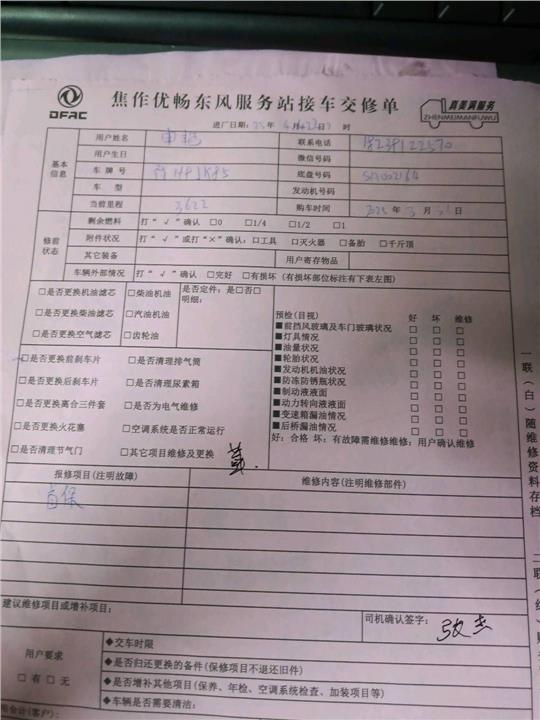 DFAC
焦作优畅东风服务站接车交修单
真美满服务
ZHENMEIMANFUWU
进厂日期: 年 月 日 时
基本信息
用户姓名
联系电话 18239122570
用户生日
微信号码
车牌号
底盘号码
发动机号码
当前里程 3622
购车时间 年 3 月 日
修前状态
剩余燃料 打“√”确认 □0 □1/4 □1/2 □1
附件状况 打“√”或打“×”确认:□工具 □灭火器 □备胎 □千斤顶
其它装备
用户寄存物品
车辆外部情况 打“√”确认 □完好 □有损坏(有损坏部位标注有下表左图)
□是否更换机油滤芯 □柴油机油 是否定件:是□否□
明细:
□是否更换柴油滤芯 □汽油机油
□是否更换空气滤芯 □齿轮油
□是否更换前刹车片 □是否清理排气筒
□是否更换后刹车片 □是否清理尿素箱
□是否更换离合三件套 □是否为电气维修
□是否更换火花塞 □空调系统是否正常运行
□是否清理节气门 □其它项目维修及更换
预检(目视) 好 坏 维修
■前挡风玻璃及车门玻璃状况 □ □ □
■灯具情况 □ □ □
■油量状况 □ □ □
■轮胎状况 □ □ □
■发动机机油状况 □ □ □
■防冻防锈瓶状况 □ □ □
■制动液液面 □ □ □
■动力转向液液面 □ □ □
■变速箱漏油情况 □ □ □
■后桥漏油情况 □ □ □
好:合格 坏:有故障需维修维修:用户确认维修
报修项目(注明故障)
维修内容(注明维修部件)
首保
建议维修项目或增补项目:
司机确认签字:
用户要求
□有 □无
◆交车时限
◆是否归还更换的备件(保修项目不退还旧件)
◆是否增补其他项目(保养、年检、空调系统检查、加装项目等)
◆车辆是否需要清洁:
一联(白)随维修资料存档
二联(